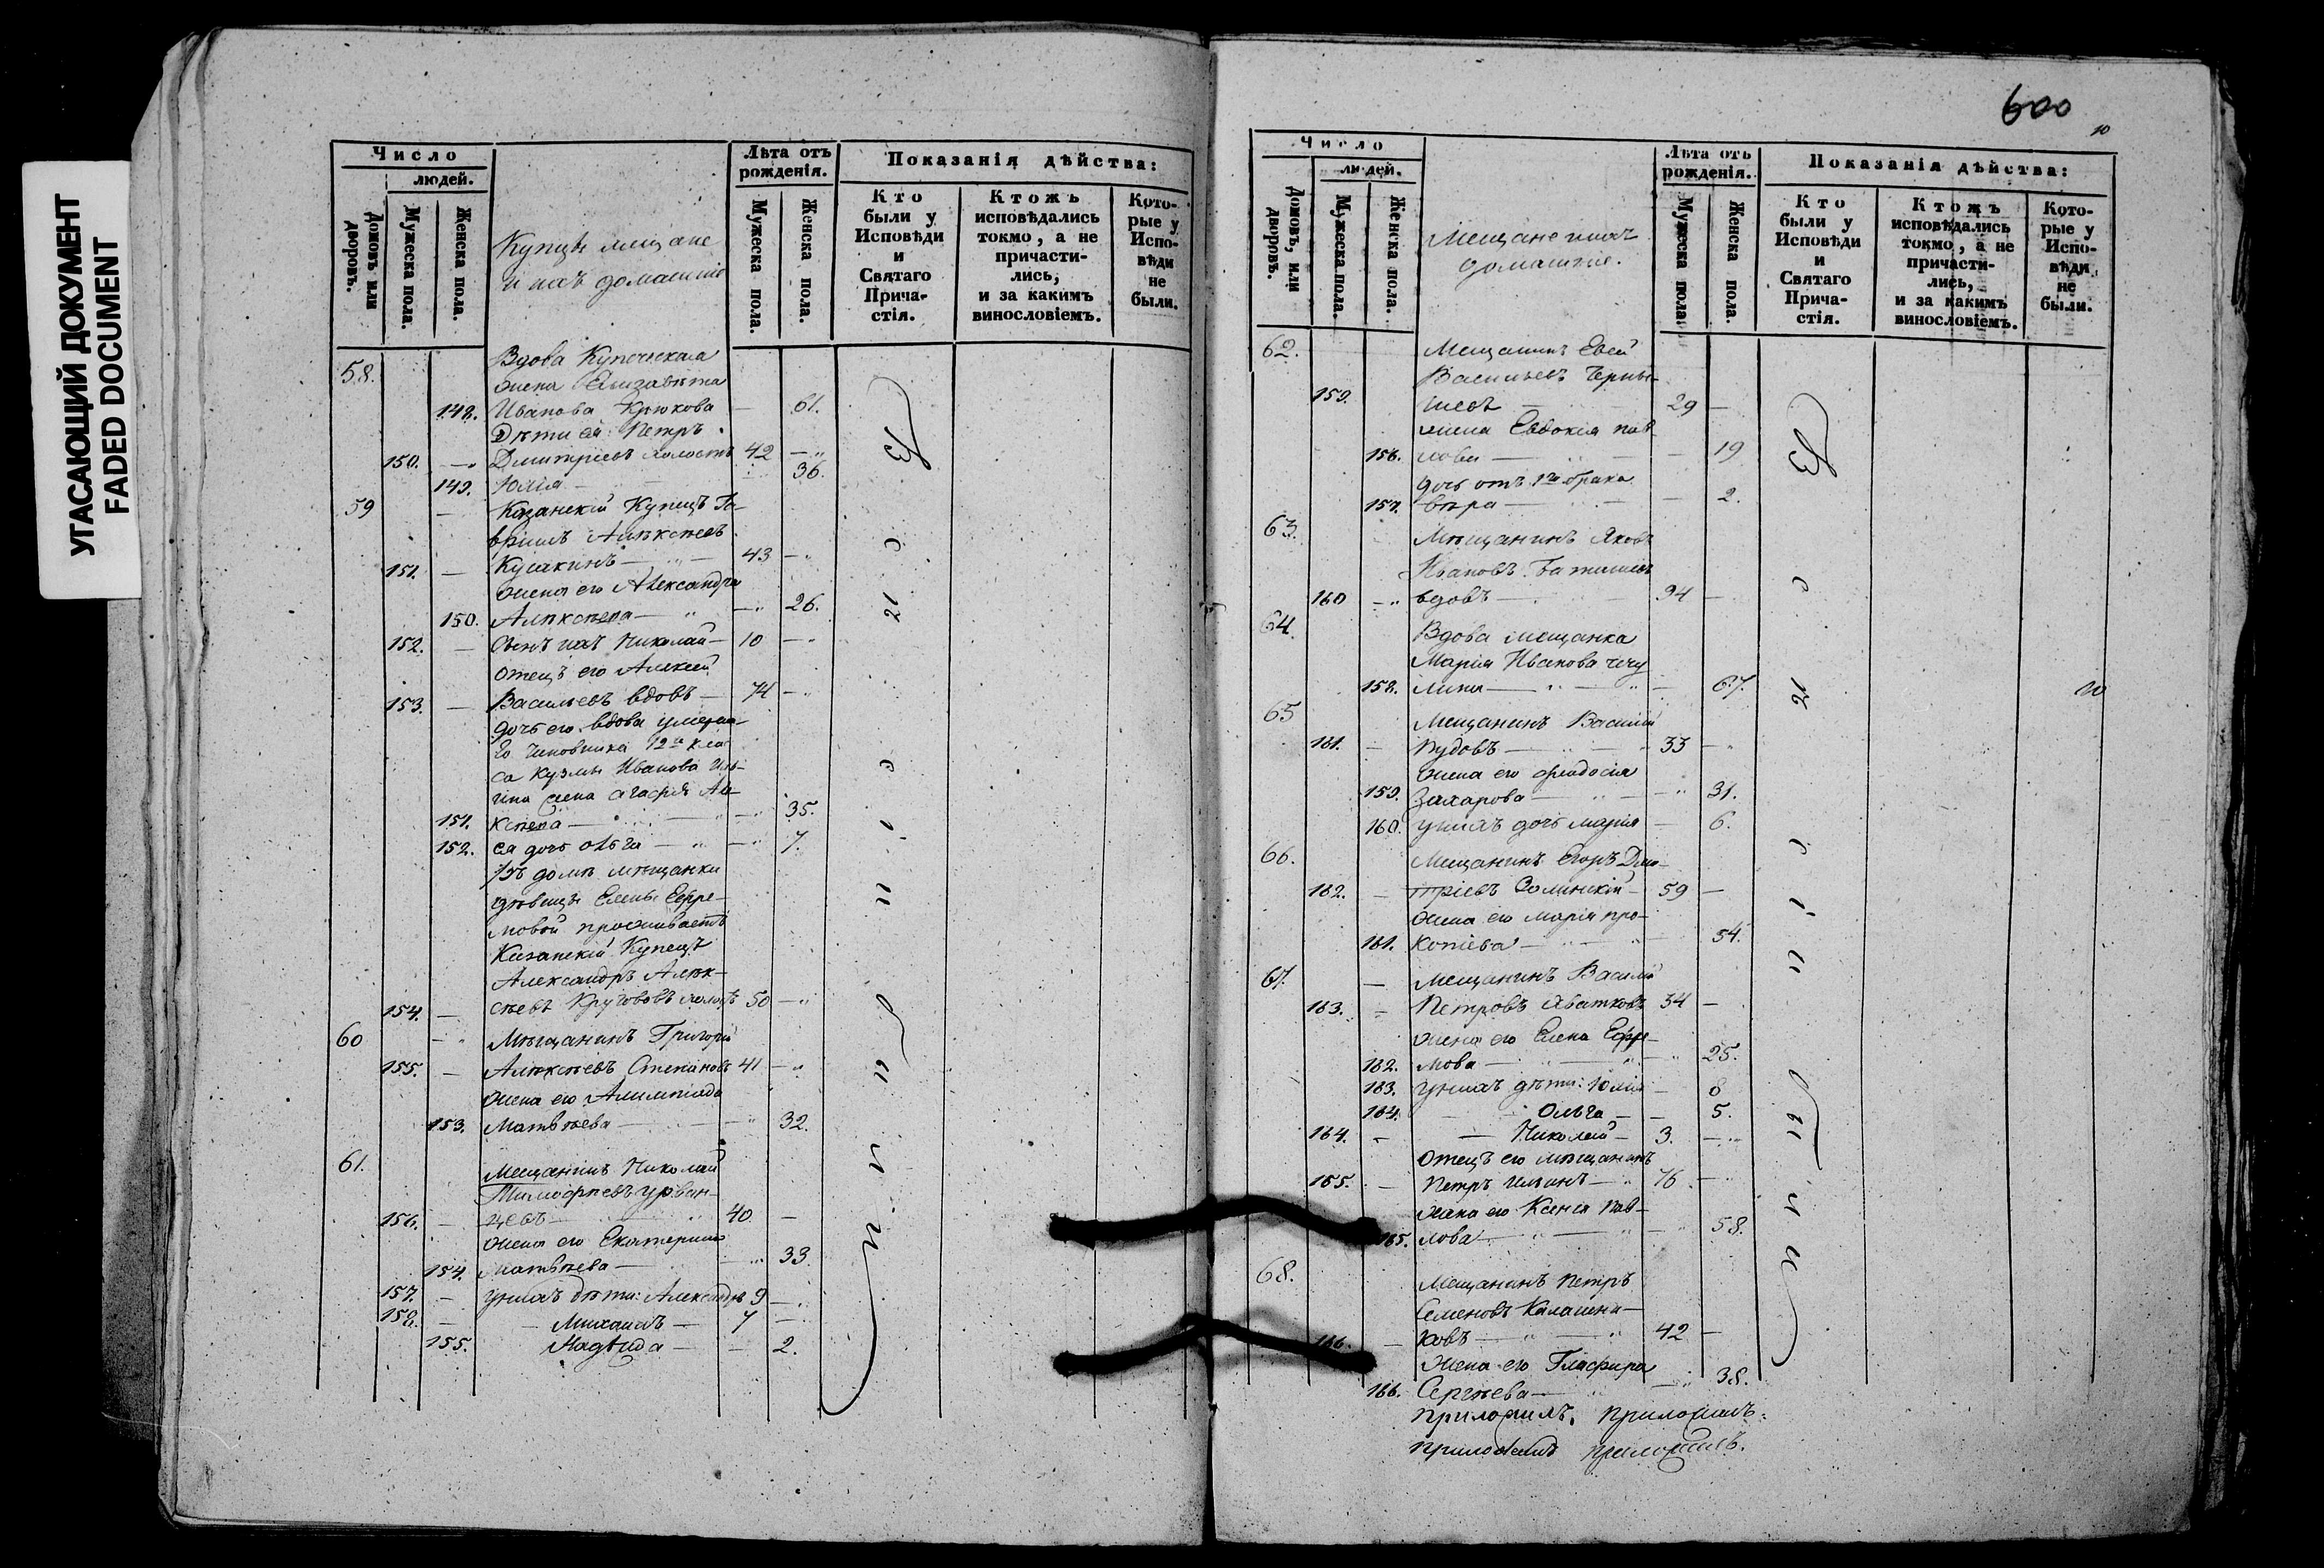 УГАСАЮЩИЙ ДОКУМЕНТ
FADED DOCUMENT
Число
людей.
Домовъ или дворовъ.
Мужеска пола.
Женска пола.
Купцы мещане
и ихъ домашніе
Лѣта отъ рожденія.
Мужеска пола.
Женска пола.
Показанія дѣйства:
Кто были у Исповѣди и Святаго Прича-стія.
Ктожъ исповѣдались токмо, а не причасти-лись, и за какимъ винословіемъ.
Кото-рые у Испо-вѣди не были.
58. Вдова Купеческая
жена Елизавета
148. Иванова Крюкова — 61.
Дѣти ея: Петръ
150. Дмитріевъ холостъ 42
149. Юлія — 36.
59 Казанскій Купецъ Га-
вріилъ Алексѣевъ
151. — 43
жена его Александра
150. Алексѣева — 26.
152. Сынъ ихъ Николай — 10
отецъ его Алексей
153. Васильевъ вдовъ — 74
дочь его вдова умерша-
го чиновника 12го клас
са Кузмы Иванова Иль-
ина жена Агафія Але-
151. ксѣева — 35.
152. ея дочь Ольга — 7.
Въ домѣ мѣщанки
дѣвицы Елены Ефре-
мовой проживаетъ
Казанскій Купецъ
Александръ Алек-
154. сѣевъ холостъ 50
60 Мѣщанинъ Григорій
155. Алексѣевъ Степановъ 41
жена его Алимпіада
153. Матвѣева — 32.
61. Мещанинъ Николай
Тимофѣевъ Урван-
156. цевъ — 40
жена его Екатерина
154. Матвѣева — 33.
157. у нихъ дѣти: Александръ 9
158. Михаилъ — 7
155. Надежда — 2.
Б
ы
л
и
600
10
Число
людей.
Домовъ, или дворовъ.
Мужеска пола.
Женска пола.
Мещане и ихъ
домашніе.
Лѣта отъ рожденія.
Мужеска пола.
Женска пола.
Показанія дѣйства:
Кто были у Исповѣди и Святаго Прича-стія.
Ктожъ исповѣдались токмо, а не причасти-лись, и за какимъ винословіемъ.
Кото-рые у Испо-вѣди не были.
62. Мещанинъ
Васильевъ Черны-
159. шевъ — 29
жена Евдокія Пав
156. лова — 19
дочь отъ 1го брака
157. Вѣра — 2.
63. Мѣщанинъ Яковъ
Ивановъ
160 вдовъ — 94
64. Вдова мещанка
Марія Иванова
158. лина — 67.
65 Мещанинъ Василій
161. Пудовъ — 33
жена его Феодосія
159. Захарова — 31.
160. у нихъ дочь Марія — 6.
66. Мещанинъ Егоръ Дми-
162. тріевъ Волинскій — 59
жена его Марія Про-
161. копіева — 54.
67. Мещанинъ Василій
163. Петровъ 34
жена его Елена Ефре-
162. мова — 25.
163. у нихъ дѣти: Юлія — 8
164. Ольга — 5.
164. Николай — 3.
отецъ его мѣщанинъ
165. Петръ Ильинъ — 76
жена его Ксенія Пав-
165. лова — 58.
68. Мещанинъ Петръ
Семеновъ Калашни-
166. ковъ — 42
жена его Глафира
166. Сергѣева — 38.
Б
ы
л
и